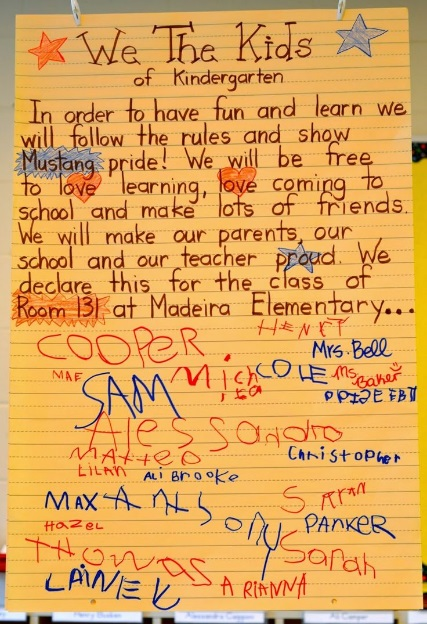 We The Kids
of Kindergarten
In order to have fun and learn we
will follow the rules and show
Mustang pride! We will be free
to love learning, love coming to
school and make lots of friends.
We will make our parents, our
school and our teacher proud. We
declare this for the class of
Room 131 at Madeira Elementary...
HENRY
COOPER
Mrs. Bell
MAE
SAM
Micha
COLE
Ms. Baker
Alessandro
Matteo
Christopher
LILAH
Ali Brooke
MAX
SARAH
HAZEL
PARKER
THOMAS
Sarah
LAINEY
ARIANNA